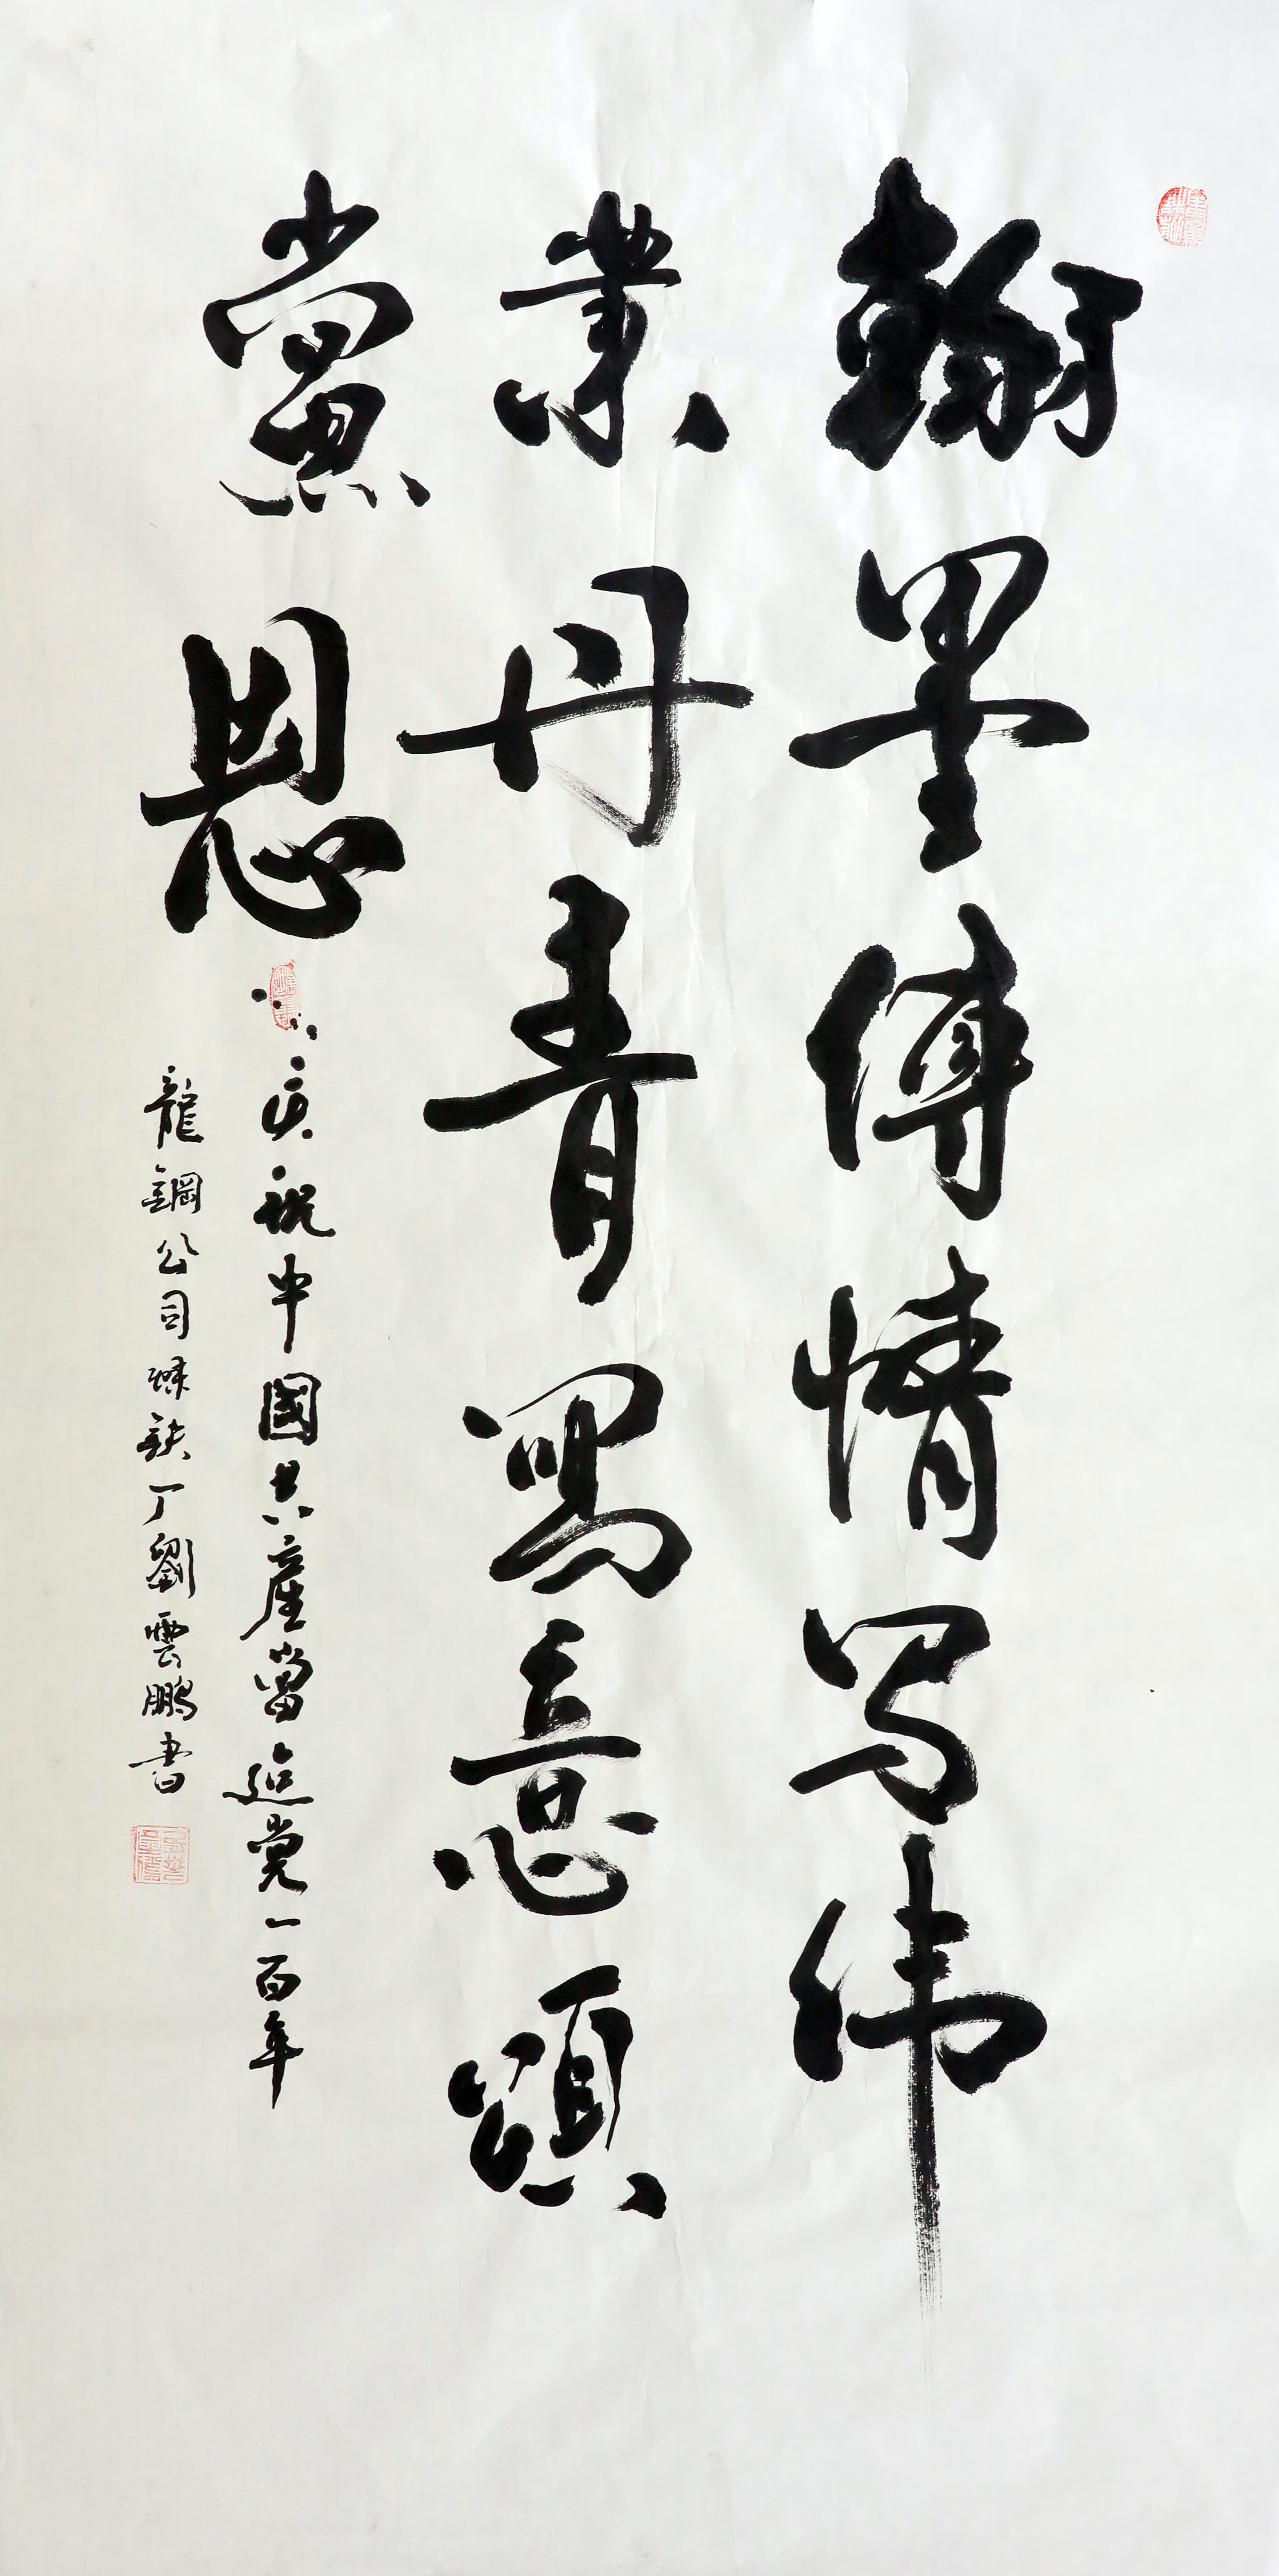 翰墨傳情写伟
業丹青寫意頌
黨恩
庆祝中國共產黨建党一百年
龍鋼公司煉鉄厂劉雲鵬書